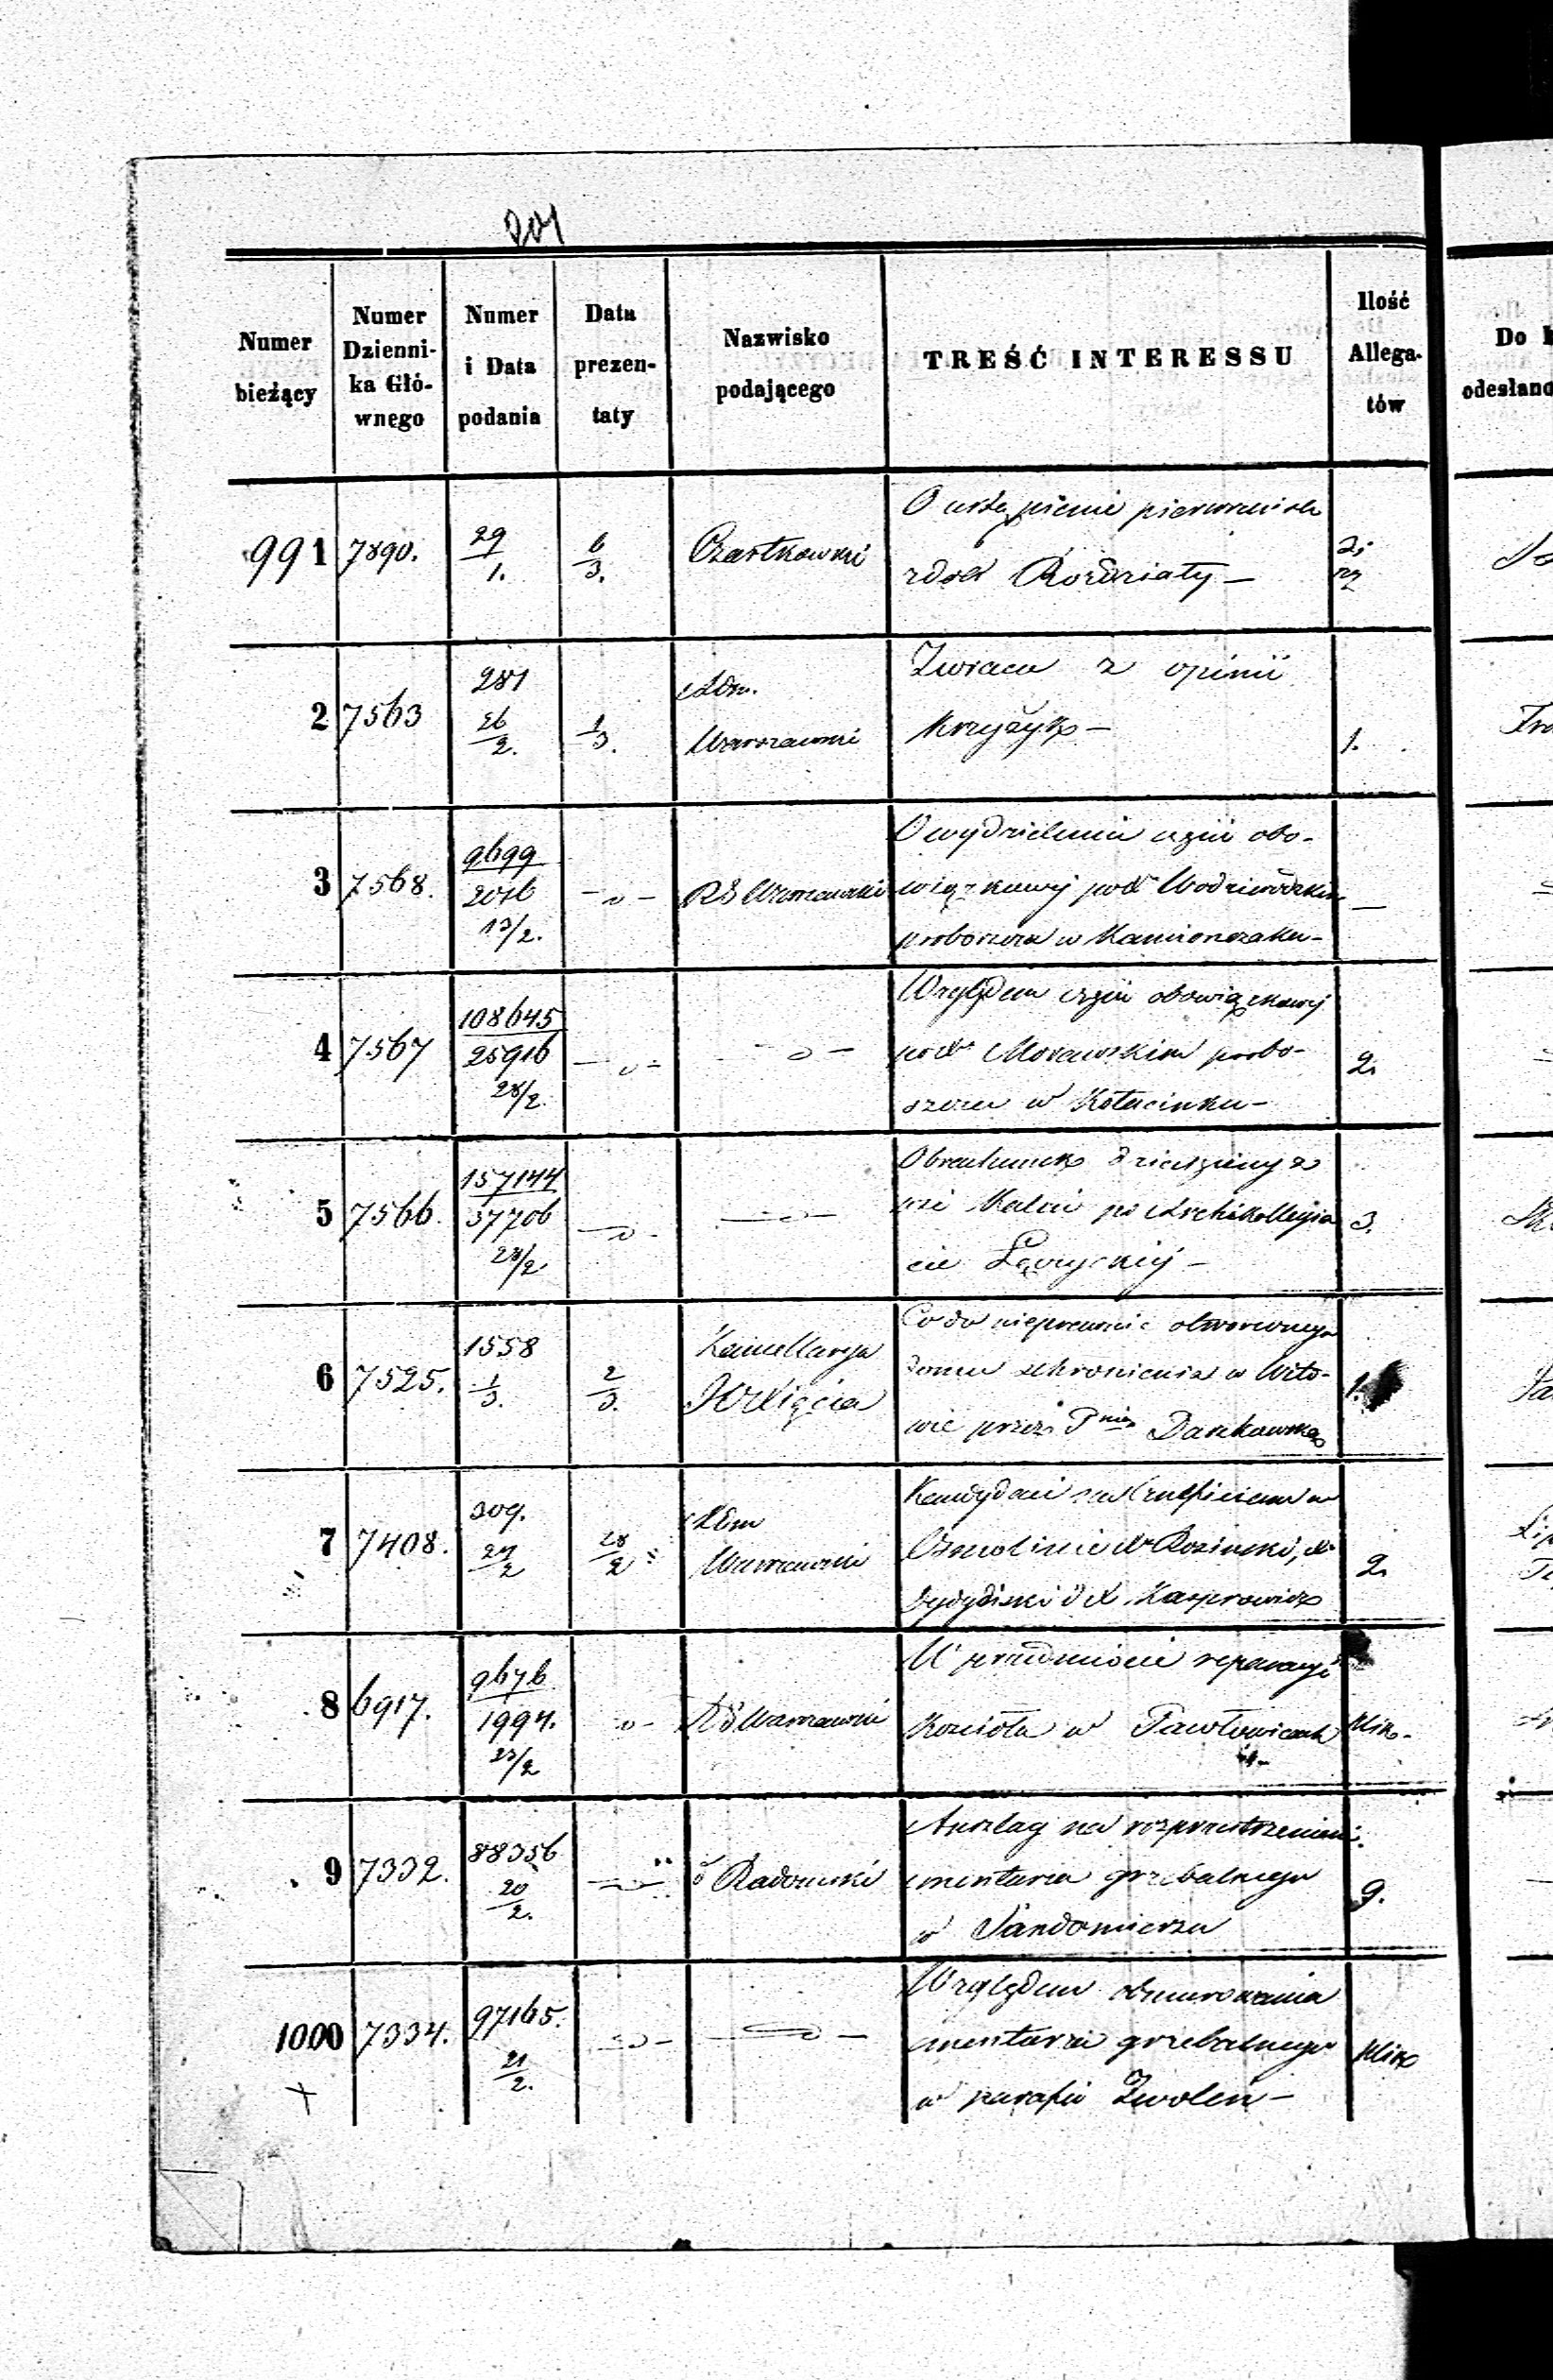 201
Numer bieżący
Numer Dzienni-
ka Głó-
wnego
Numer
i Data
podania
Data
prezen-
taty
Nazwisko
podającego
TREŚĆ INTERESSU
Ilość
Allega-
tów
Do
odesłano
991 7890. 29/1. 6/3. Czastkowski
O ustąpienie pierwszeństwa
2 7563 281 26/2. 1/3. Adm. Warszawski
Zwraca z opinii
1.
3 7568. 9699 2076 13/2. -„- RG Warszawski
O wydzielenie części obo-
wiązkowej po X Wodziwodzkim
proboszczu w Kamionczaku-
—
4 7567 108645 25916 28/2. -„- -„-
Względem części obowiązkowej
po X Morawskim probo-
szczu w Kołacinku-
2.
5 7566. 157144 37706 28/2. -„- -„-
Obrachunek dziesięciny z
wsi po Archikollegia
cie Łęczyckiej -
3.
6 7525. 1558 1/3. 2/3. Kancellarya Xięcia
Co do nieprawnie otworzonego
domu schronienia w Wito-
wie przez Pnią Daszkowską
1.
7 7408. 309. 27/2 28/2 Adm Warszawski
Kandydaci na beneficium w
Osmolinie X Rosinski, X
i X Kasprowicz
2.
8 6917. 9676 1994. 23/2 -„- RG Warszawski
W przedmiocie reperacyi
Kościoła w Pawłowicach
9 7332. 88356 20/2. -„- " Radomski
Anszlag na rozprzestrzenienie
cmentarza grzebalnego
w Sandomierzu
9.
1000 7334. 97165. 21/2. -„- -„-
Względem obmurowania
cmentarza grzebalnego
w parafii Zwolen -